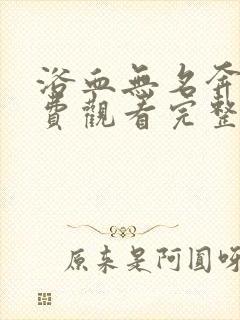 浴血無名奔
費觀看完整
原来是阿圓呀